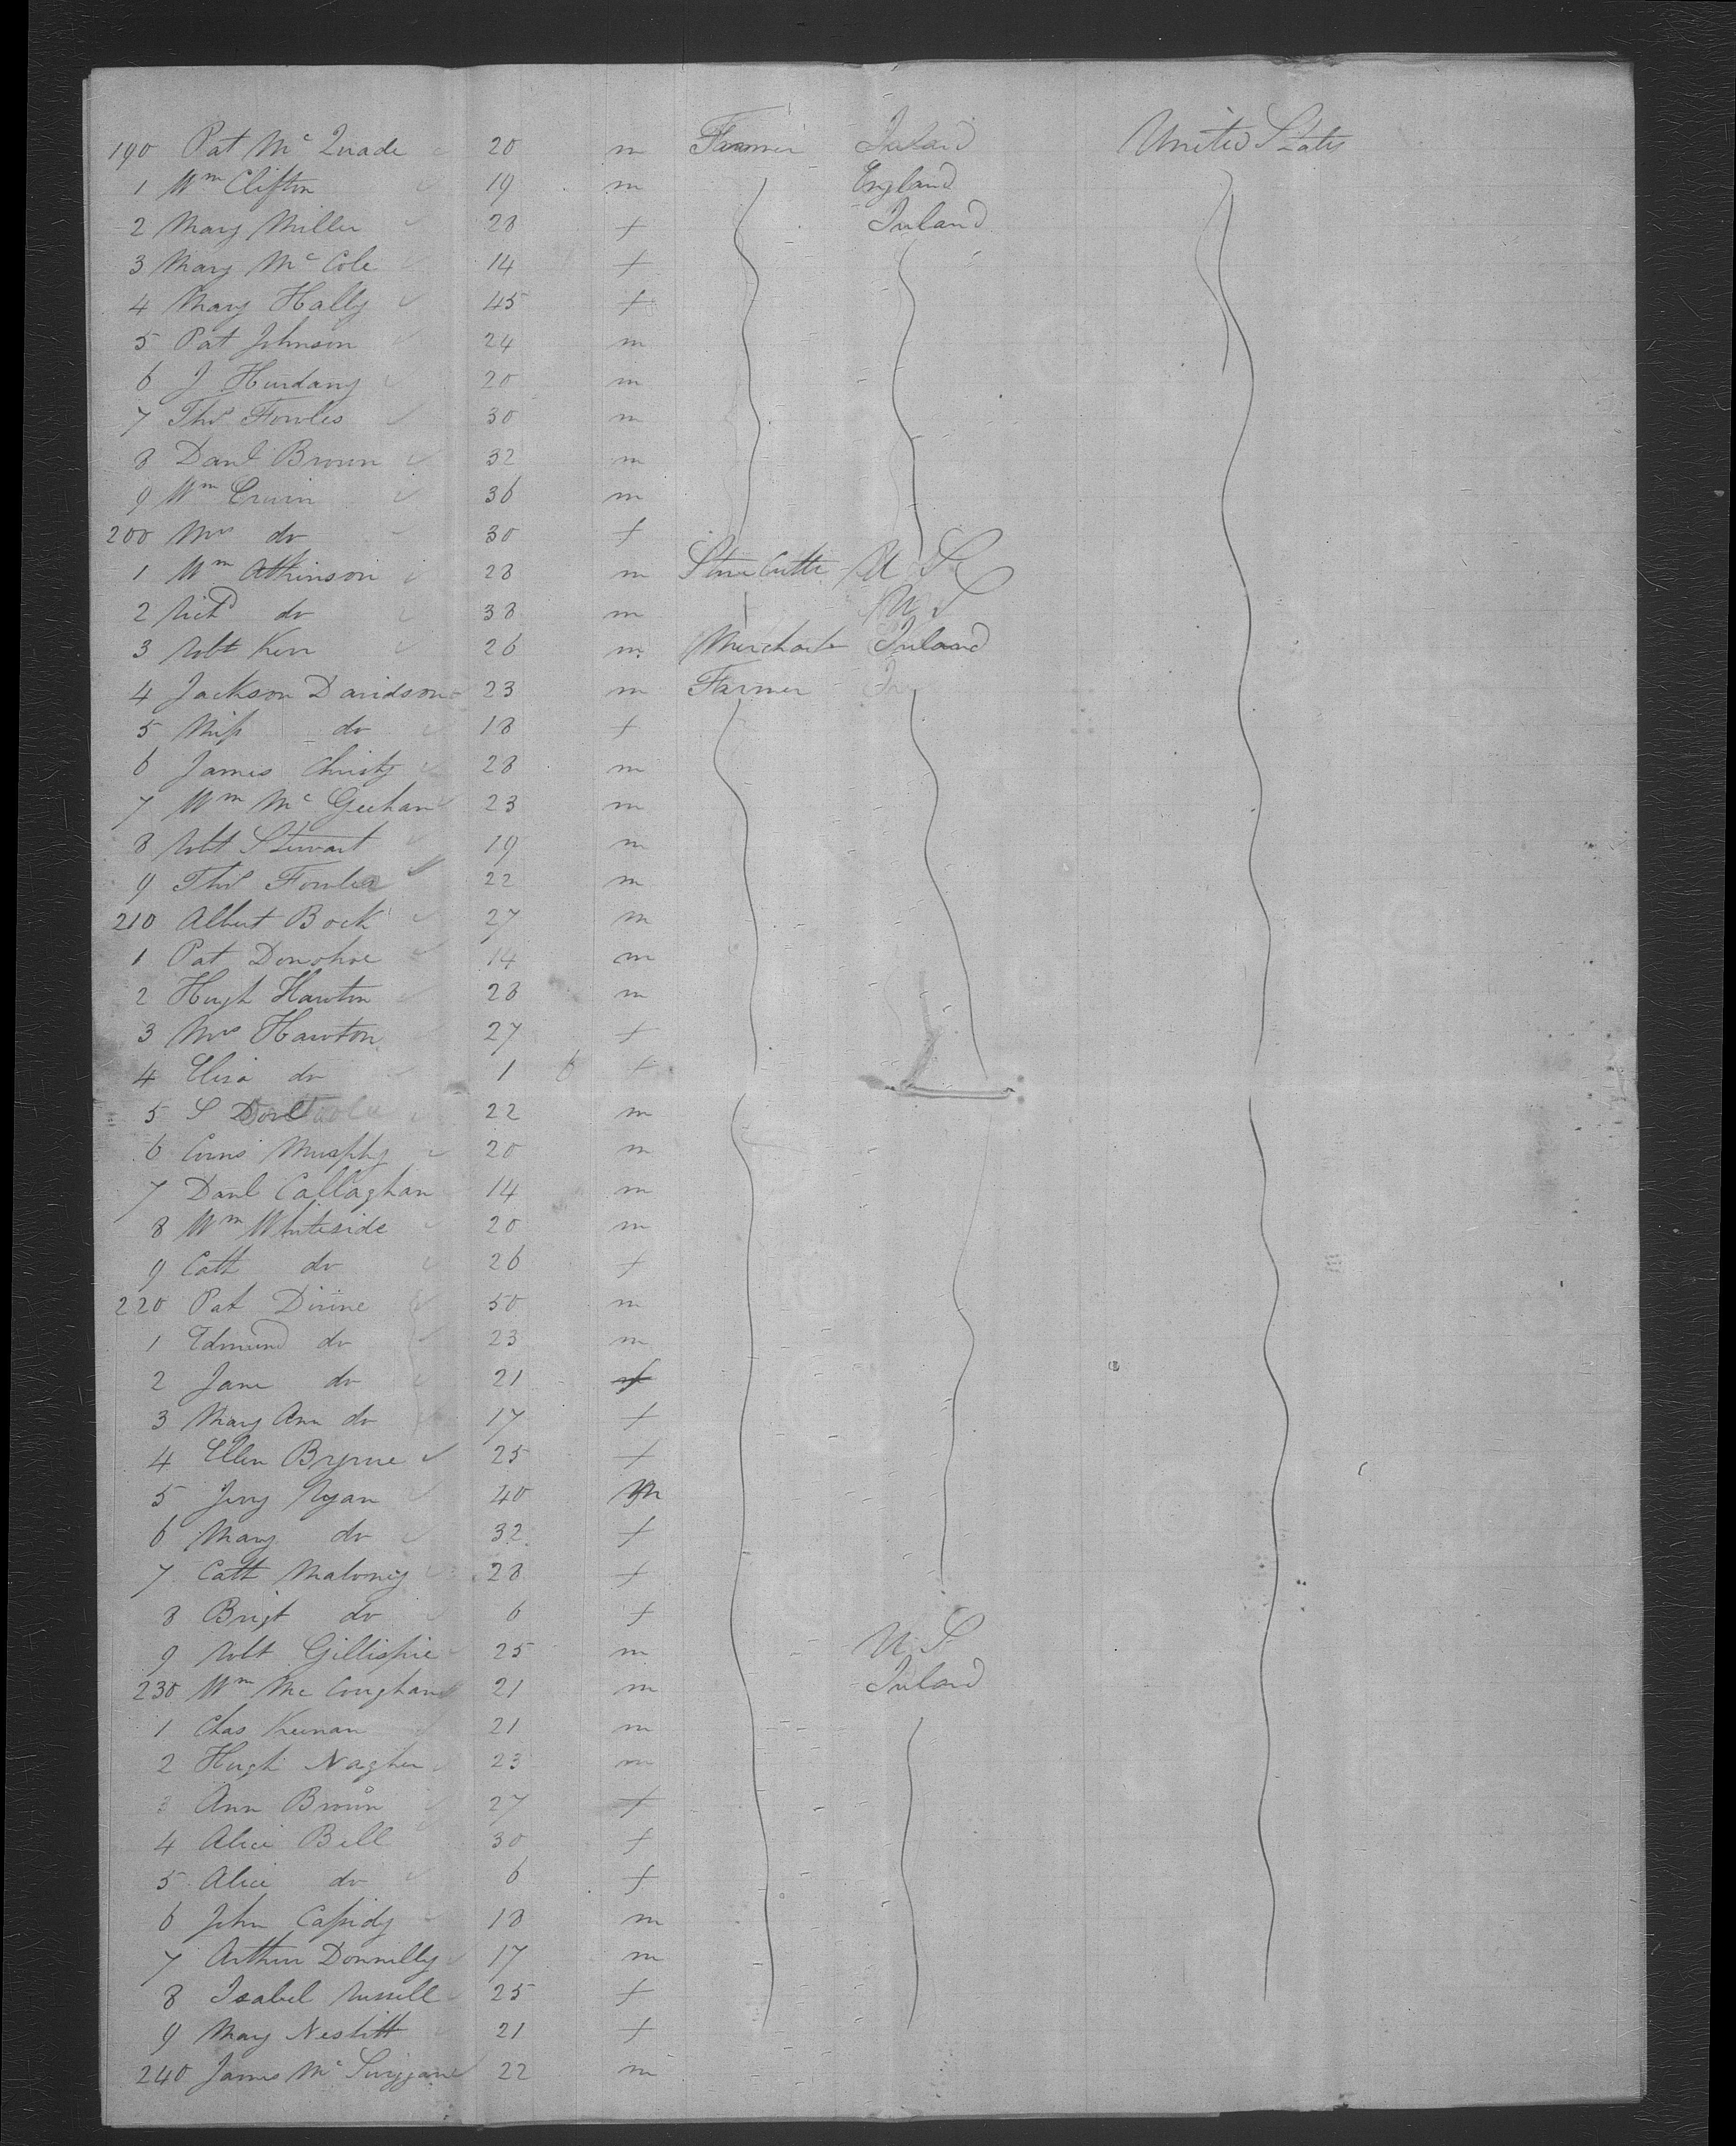 190 Pat Mc Quade 20 m Farmer Ireland United States
1 Wm Clifton 19 m England
2 Mary Miller 28 f Ireland
3 Mary Mc Cole 14 f
4 Mary Hally 45 f
5 Pat Johnson 24 m
6 J 20 m
7 Thos Fowles 30 m
8 Danl Brown 32 m
9 Wm 36 m
200 Mrs do 30 f
1 Wm Atkinson 28 m Stone Cutter U S
2 Richd do 38 m U S
3 Robt Kerr 26 m Merchant Ireland
4 Jackson Davidson 23 m Farmer
5 Miss do 18 f
6 James Christy 28 m
7 Wm Mc Geehan 23 m
8 Robt Stewart 19 m
9 Thos Fowler 22 m
210 Albert Bock 27 m
1 Pat Donohoe 14 m
2 Hugh Hawton 28 m
3 Mrs Hawton 27 f
4 Eliza do 1 6 f
5 S 22 m
6 Corns Murphy 20 m
7 Danl Callaghan 14 m
8 Wm Whiteside 20 m
9 Cath do 26 f
220 Pat Divine 50 m
1 Edmund do 23 m
2 Jane do 21 f
3 Mary Ann do 17 f
4 Ellen Bryrne 25 f
5 Jerry Ryan 40 m
6 Mary do 32 f
7 Cath Maloney 28 f
8 Brigt do 6 f
9 Robt Gillispie 25 m U S
230 Wm Mc Coughan 21 m Ireland
1 Chas Keenan 21 m
2 Hugh Nagher 23 m
3 Ann Brown 27 f
4 Alice Bell 30 f
5 Alice do 6 f
6 John Cassidy 18 m
7 Arthur Donnilly 17 m
8 Isabel Russell 25 f
9 Mary Nesbitt 21 f
240 James Mc 22 m